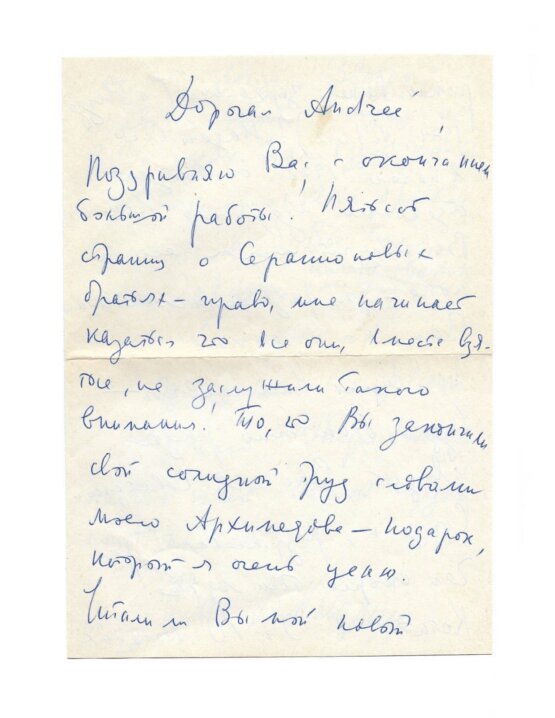 Дорогая Andreé
Поздравляю Вас с окончанием
большой работы! Пятьсот
страниц о Серапионовых
братьях – право, мне начинает
казаться что все они, вместе взя-
тые, не заслужили такого
внимания! То, что Вы закончили
свой солидный труд словами
моего Архимедова – подарок,
который я очень ценю.
Читали ли Вы мой новый